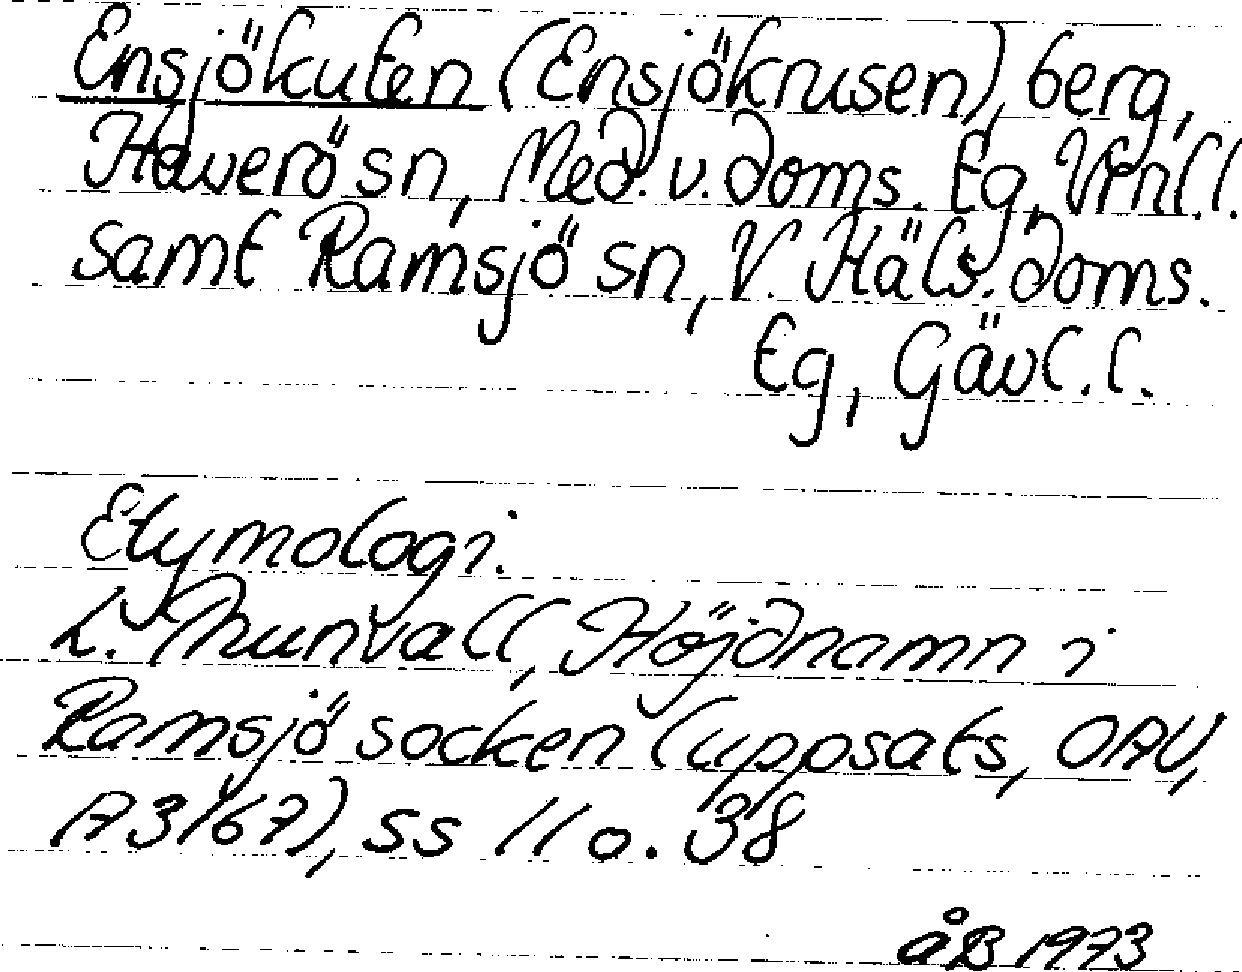 Ensjökuten (Ensjökrusen), berg,
Haverö sn, Med. v. doms. tg, Vrnl. l.
samt Ramsjö sn, V. Häls. doms.
tg, Gävl. l.
Etymologi.
L. Hunvall, Höjdnamn i
Ramsjö socken (uppsats, OAU,
A3167), ss 11 o. 38
åB 1973